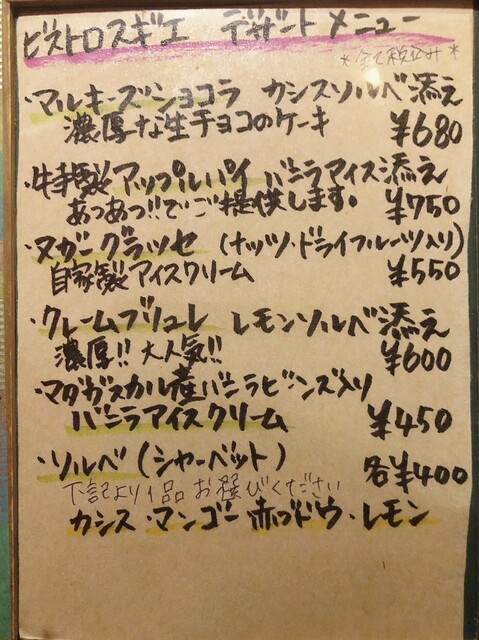 ビストロスギエ デザートメニュー
*全て税込み*
・マルキーズショコラ カシスソルベ添え
濃厚な生チョコのケーキ ¥680
・特製アップルパイ バニラアイス添え
あつあつ!!でご提供します。 ¥750
・ヌガーグラッセ (ナッツ・ドライフルーツ入り)
自家製アイスクリーム ¥550
・クレームブリュレ レモンソルベ添え
濃厚!! 大人気!! ¥600
・マダガスカル産バニラビーンズ入り
バニラアイスクリーム ¥450
・ソルベ(シャーベット) 各¥400
下記より1品お選びください
カシス・マンゴー・赤ブドウ・レモン